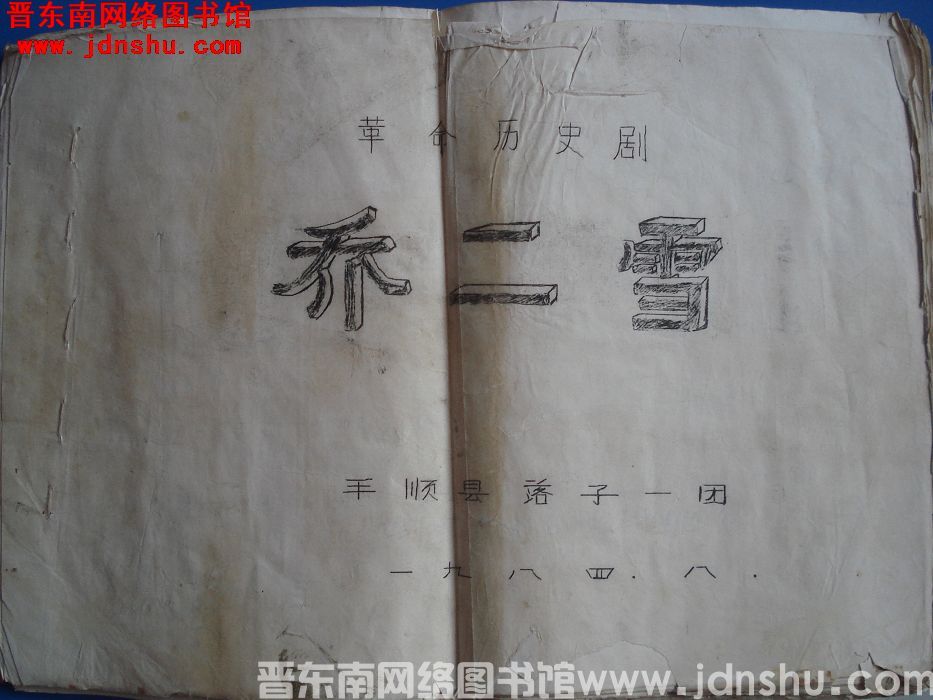 晋东南网络图书馆
www.jdnshu.com
革命历史剧
乔二雪
平顺县落子一团
一九八四.八.
晋东南网络图书馆 www.jdnshu.com